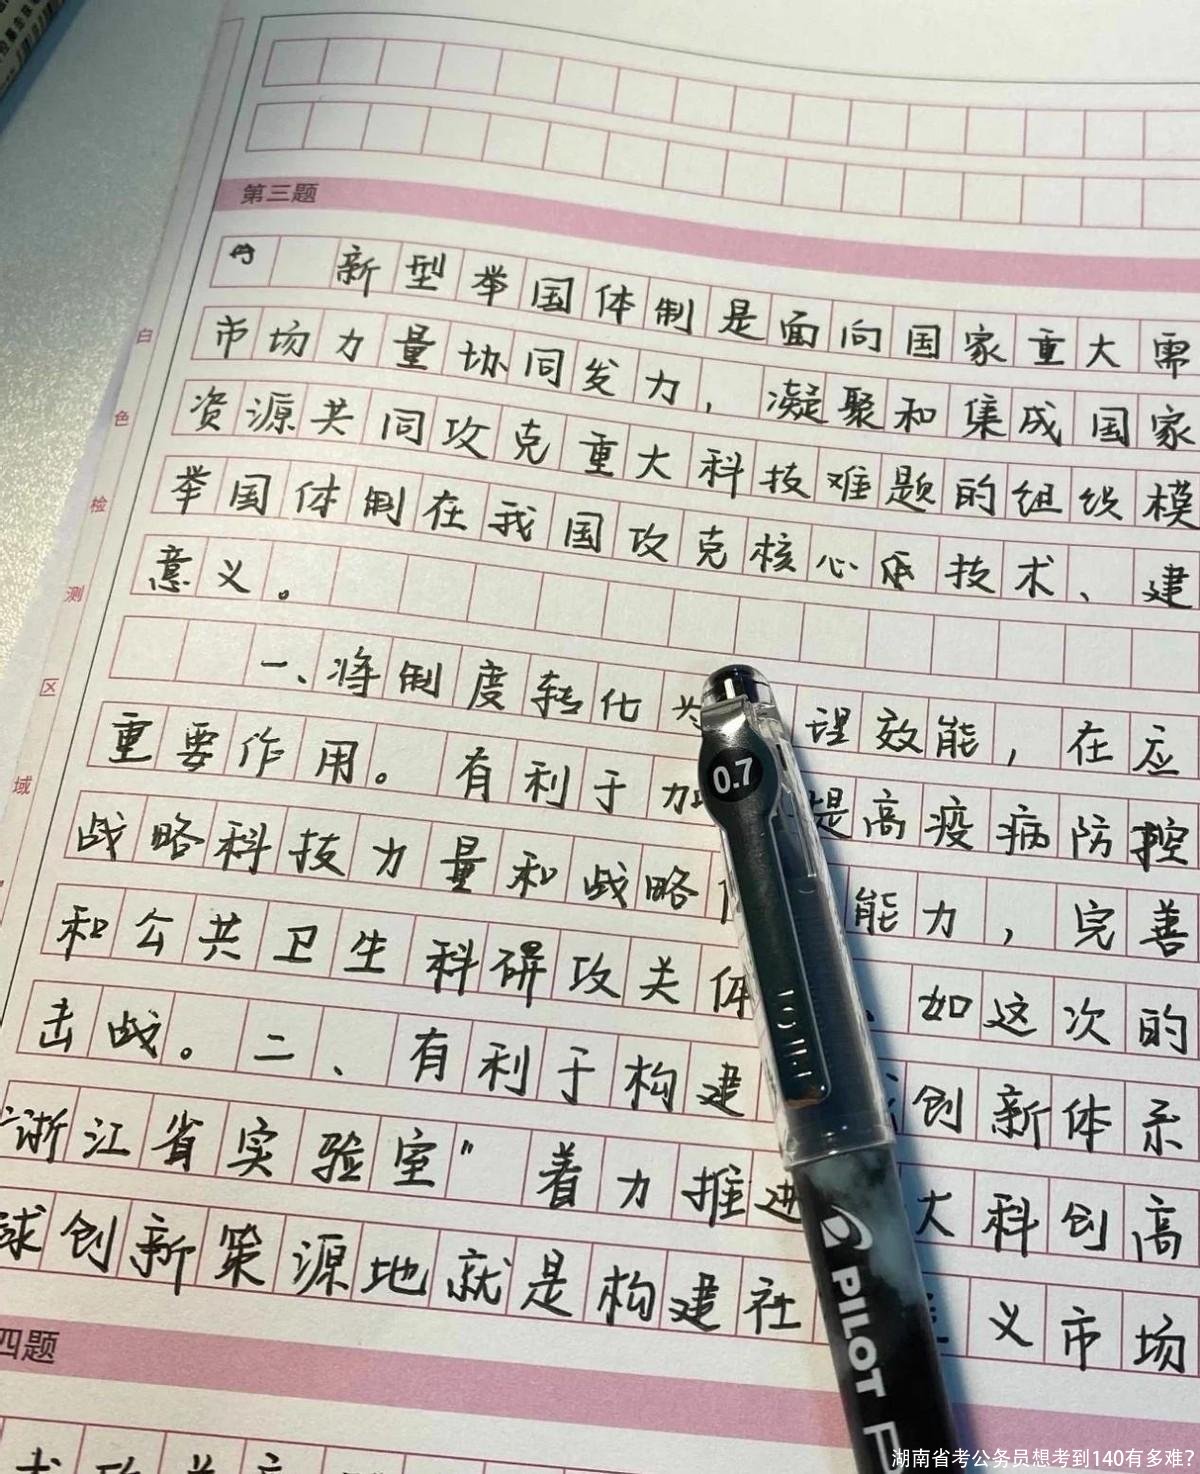 第三题
新型举国体制是面向国家重大需
市场力量协同发力，凝聚和集成国家
资源共同攻克重大科技难题的组织模
举国体制在我国攻克核心技术、建
意义。
一、将制度转化为理效能，在应
重要作用。有利于加提高疫病防控
战略科技力量和战略能力，完善
和公共卫生科研攻关体、如这次的
击战。二、有利于构建创新体系
"浙江省实验室"着力推进大科创高
球创新策源地就是构建社义市场
四题
白色检测区域
0.7
PILOT
湖南省考公务员想考到140有多难?